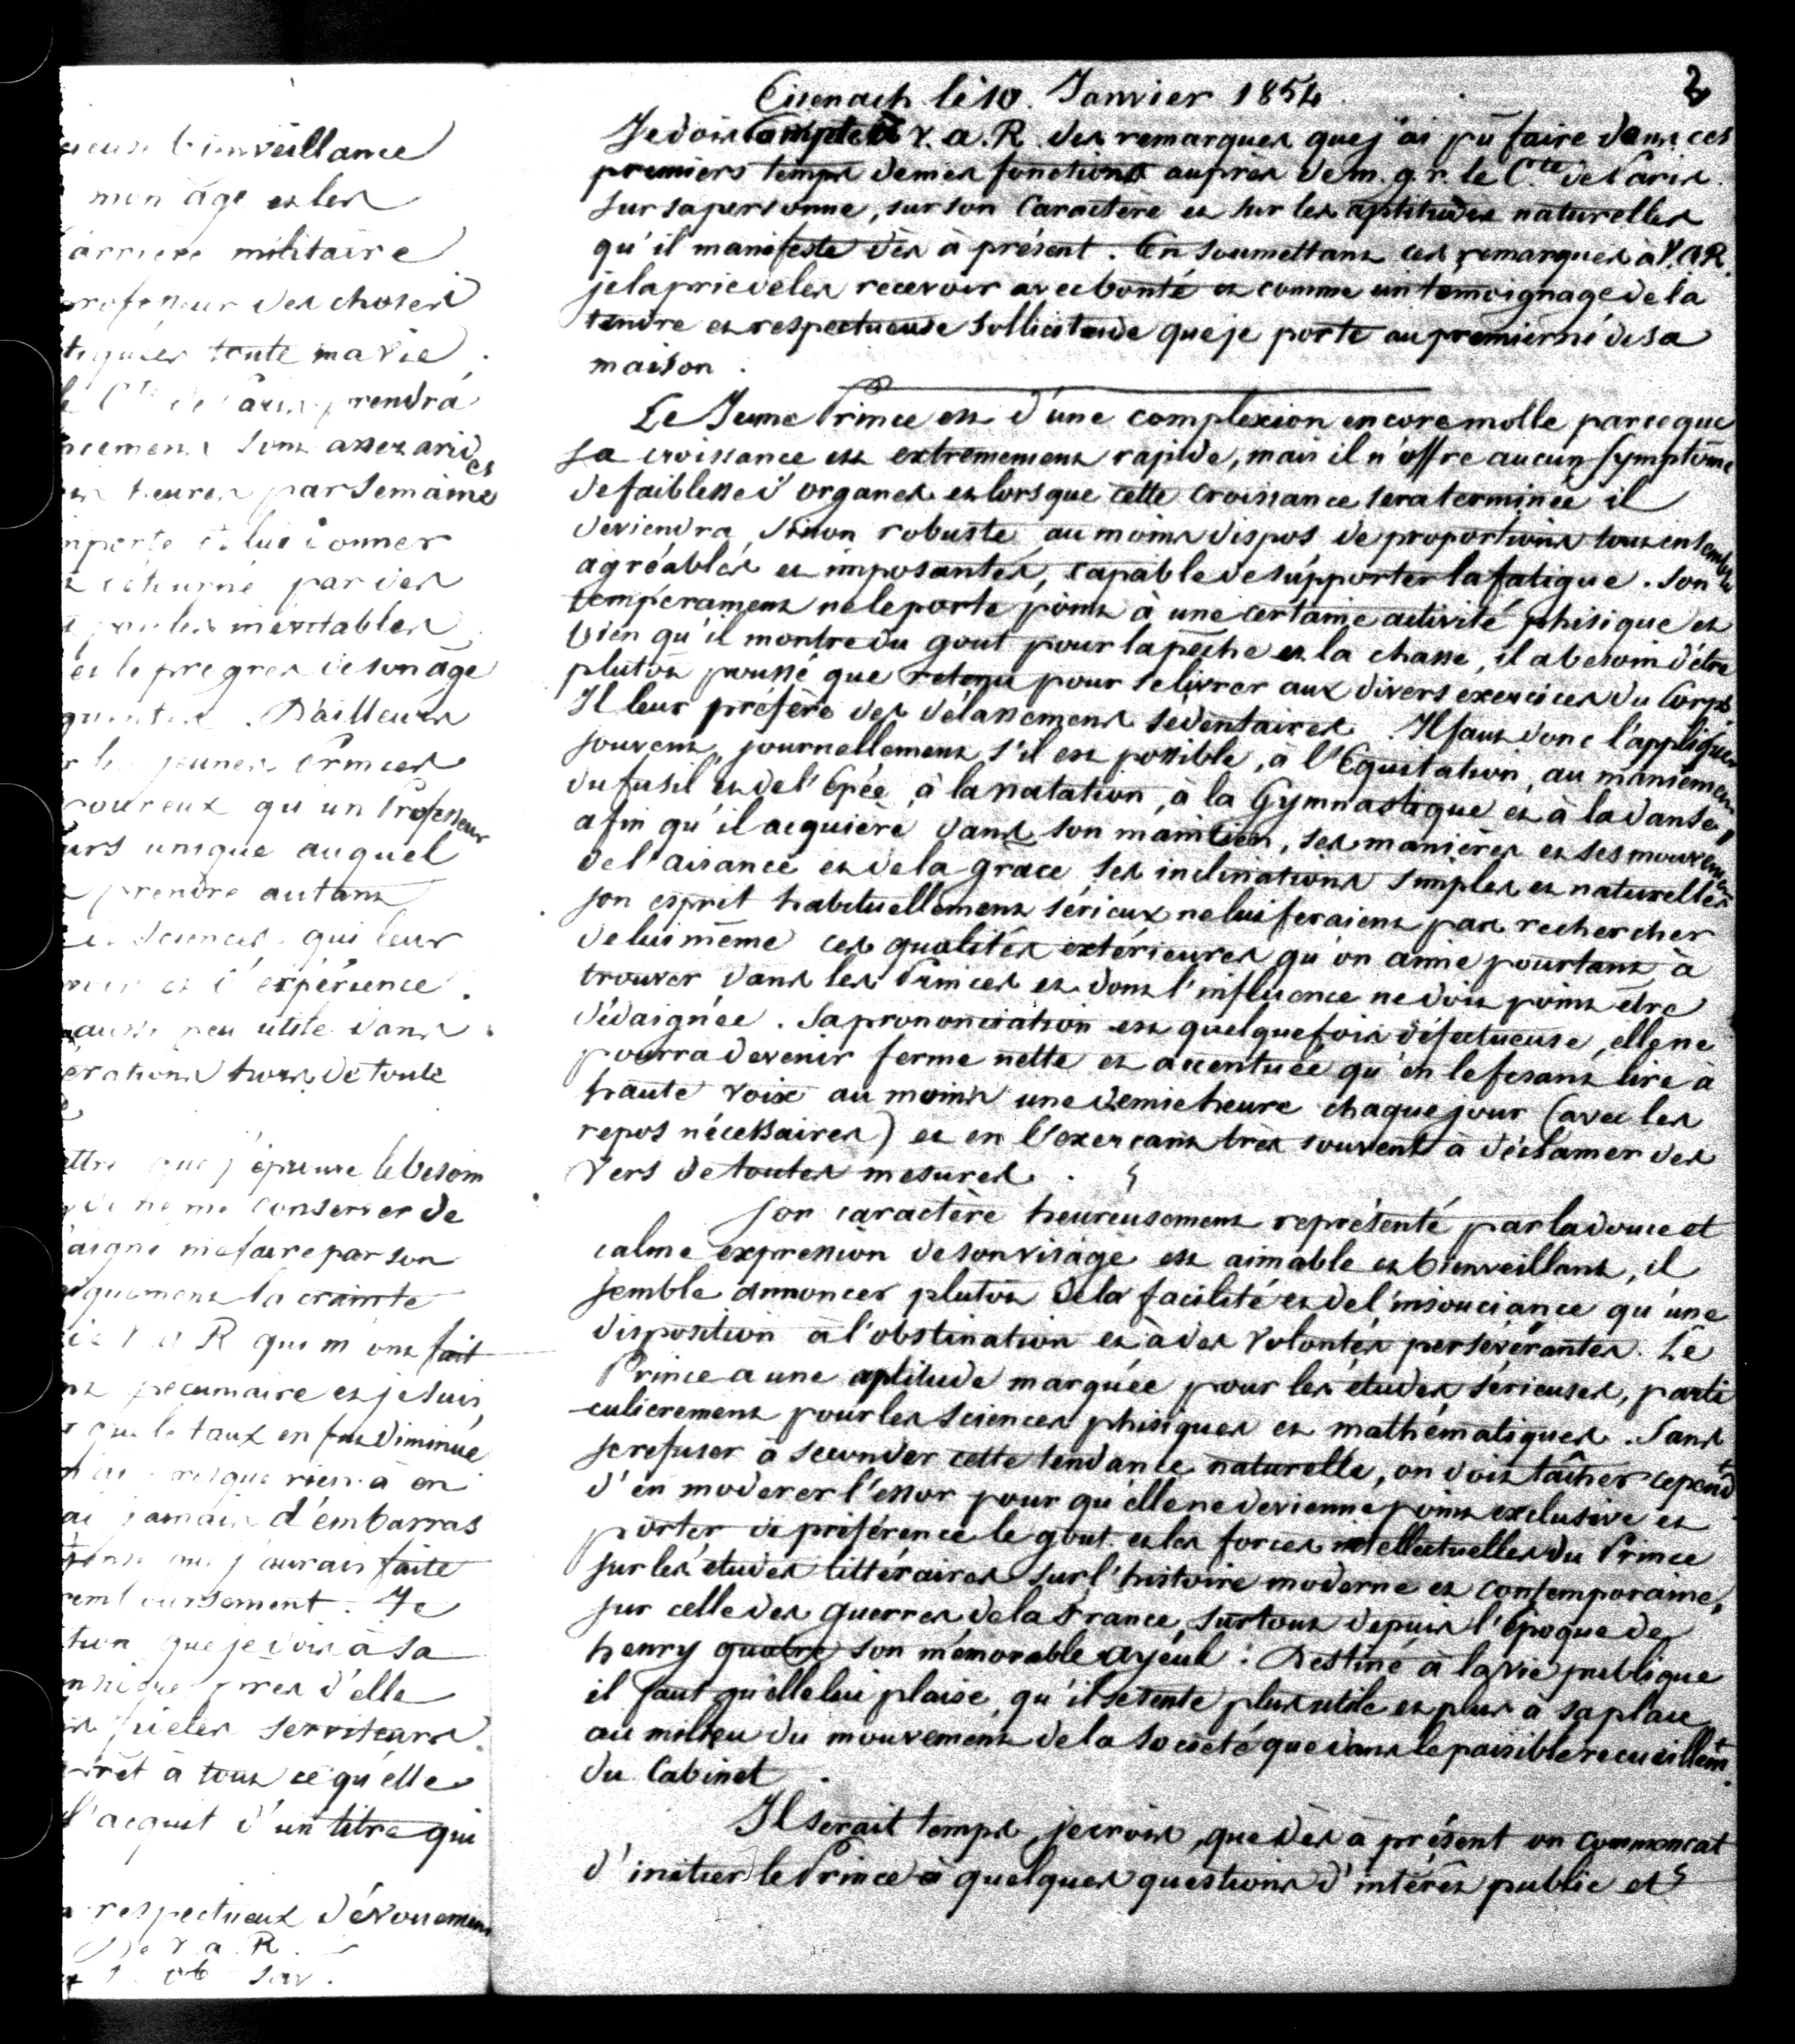 ieuse bienveillance
mon âge et les
arrière militaire
rofesseur des choses
tiquées toute ma vie.
le Cte de Paris prendra
ncemens sont assez arides
heures par semaine
mporte de lui donner
par des
inévitables
et le progrès de son âge
D'ailleurs
jeunes Princes
oureux qu'un Professeur
urs unique auquel
prendre autant
Sciences qui leur
et l'expérience.
aussi peu utile dans
érations hors de toute
ettre que j'éprouve le besoin
de me conserver de
aigné me faire par son
iquement la crainte
V. a. R. qui m'ont fait
pecuniaire et je suis
que le taux en fut diminué
presque rien à en
ai jamais d'embarras
que j'aurais faite
remboursement. Je
tion que je dois à sa
près d'elle
fidèles serviteurs
prêt à tout ce qu'elle
l'acquit d'un titre qui
respectueux dévouement
De V. a. R.
ob Serv.
2
Eisenach le 10. Janvier 1854.
Je dois Compte à V. a. R. des remarques que j'ai pû faire dans ces
premiers temps de mes fonctions auprès de m. g. r. le C.te de Paris.
sur sa personne, sur son Caractère et sur les aptitudes naturelles
qu'il manifeste dès à présent. En soumettant ces remarques à V. a R.
je la prie de les recevoir avec bonté et comme un témoignage de la
tendre et respectueuse sollicitude que je porte au premier né de sa
maison.
Le Jeune Prince est d'une complexion encore molle parceque
sa croissance est extremement rapide, mais il n'offre aucun symptôme
de faiblesse d'organes et lorsque cette croissance sera terminée il
deviendra, sinon robuste, au moins dispos de proportions tout ensemble
agréables et imposantes, capable de supporter la fatigue. Son
tempérament ne le porte point à une certaine activité phisique et
bien qu'il montre du gout pour la pêche et la chasse, il a besoin d'être
plutot poussé que retenu pour se livrer aux divers exercices du Corps.
Il leur préfère des délassemens sédentaires. Il faut donc l'appliquer
souvent, journellement s'il est possible, à l'Equitation, au maniement
du fusil et de l'Epée, à la natation, à la Gymnastique et à la danse,
afin qu'il acquière dans son maintien, ses manières et ses mouvemens
de l'aisance et de la grâce. Ses inclinations simples et naturelles
son esprit habituellement sérieux ne lui feraient pas rechercher
de lui même ces qualités extérieures qu'on aime pourtant à
trouver dans les Princes et dont l'influence ne doit point être
dédaignée. Sa prononciation est quelquefois défectueuse, elle ne
pourra devenir ferme nette et accentuée qu'en le fesant lire à
haute voix au moins une demie heure chaque jour (avec les
repos nécessaires) et en l'exerçant très souvent à déclamer des
vers de toutes mesures.
Son caractère heureusement représenté par la douce et
calme expression de son visage est aimable et bienveillant, il
semble annoncer plutot de la facilité et de l'insouciance qu'une
disposition à l'obstination et à des volontés persévérantes. Le
Prince a une aptitude marquée pour les études sérieuses, parti
culierement pour les sciences phisiques et mathématiques. Sans
se refuser à seconder cette tendance naturelle, on doit tâcher cependt
d'en moderer l'essor pour qu'elle ne devienne point exclusive et
porter de préférence le gout et les forces intellectuelles du Prince
sur les études littéraires sur l'histoire moderne et contemporaine,
sur celle des guerres de la France, surtout depuis l'Epoque de
henry quatre son mémorable ayeul. Destiné à la vie publique
il faut qu'elle lui plaise, qu'il se sente plus utile et plus à sa place
au milieu du mouvement de la société que dans le paisible recueillemt
du Cabinet.
Il serait temps, je crois, que dès à présent on commencat
d'initier le Prince à quelques questions d'intérêt public et